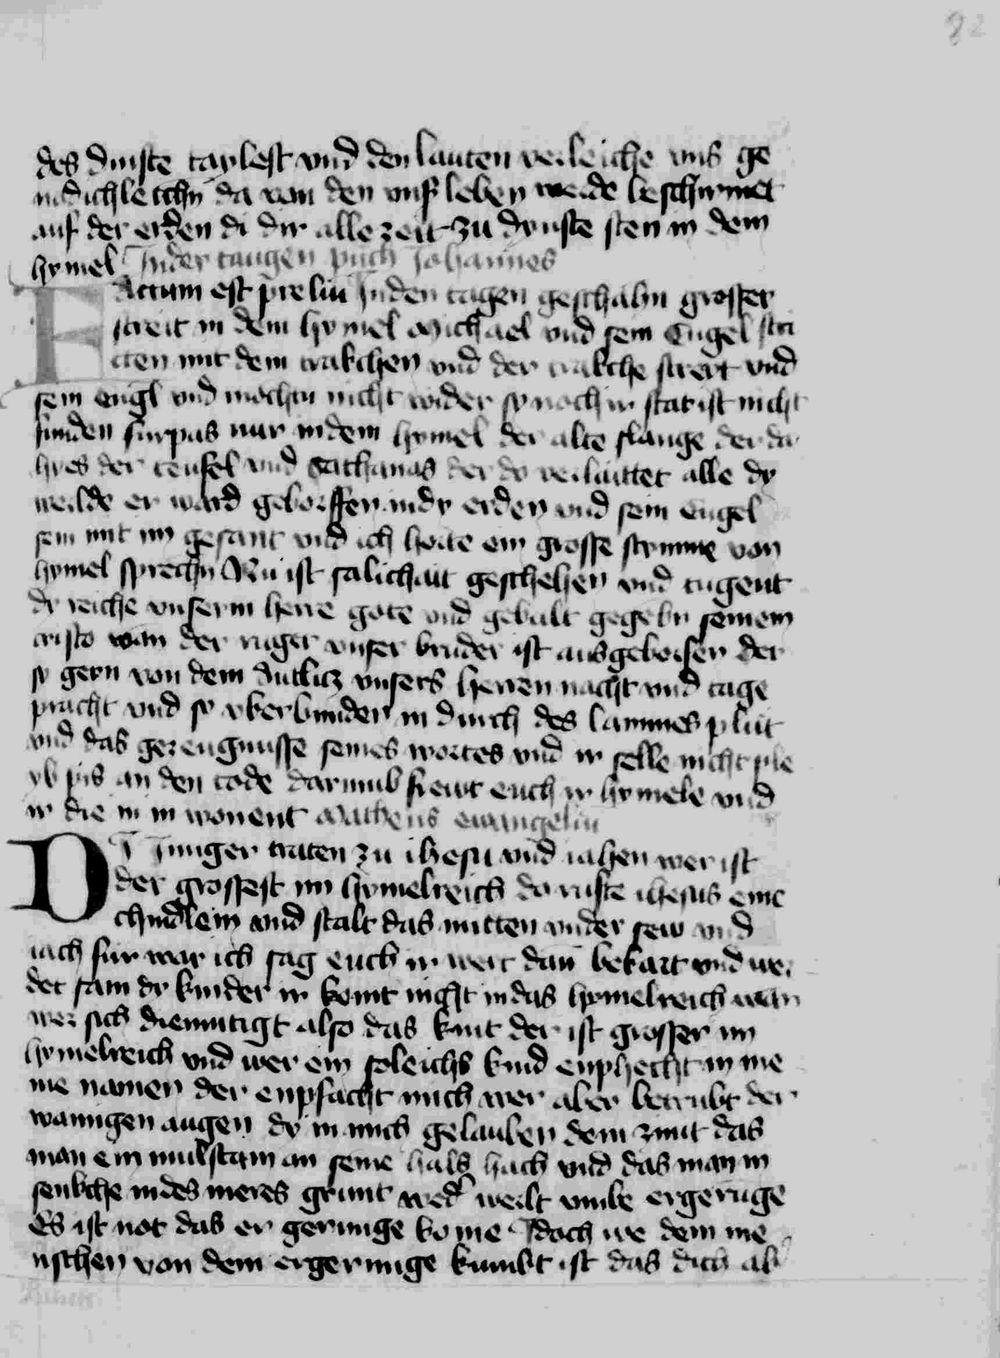 82
des dinste taylest vnd den lauten verleiche vns ge
nidichleichn da von den vnser leben werde beschirmet
auf der erden di dir alle zeit zu dinste sten in dem
hymel In der taugen puch Johannes
Factum est preliu In den tagen geschahn grosser
streit in dem hymel Michael vnd sein Engel stri
tten mit dem trakchen vnd der trakche streyt vnd
sein engl vnd mochtn nicht wider sy noch ir stat ist nicht
funden furpas mer in dem hymel der alte slange der do
hyes der teufel vnd Sathanas der do verlaittet alle dy
werlde er ward geborffen in dy erden vnd sein engel
sein mit im gesant vnd ich horte ein grosse stymme von
hymel sprechn Nu ist salichait geschehen vnd tugent
dy reiche vnserm herre gote vnd gebalt gegebn seinem
cristo wan der ruger vnser bruder ist ausgeborfen der
sy gern von dem antlicz vnsers herren nacht vnd tage
pracht vnd sy vberbunden in durch des lammes plut
vnd das gezeugnusse seines wortes vnd ir selle nicht ple
yb pis an den tode darumb frewt euch ir hymele vnd
ir die in in wonent Matheus ewangeliu
DI Junger traten zu ihesu vnd iahen wer ist
der grossest im hymelreich do rufte ihesus eine
chindlein vnd stalt das mitten vnder sew vnd
iach fur war ich sag euch ir wert dan bekart vnd wer
det sam dy kinder ir komt nicht in das hymelreich wan
wer sich diemutigt also das kint der ist grosser im
hymelreich vnd wer ein soleichs kind enphecht in me
me namen der enpfacht mich wer aber betrubt der
wanigen augen dy in mich gelauben dem zimt das
man ein mulstain an seine hals hach vnd das man in
senkche in des meres grunt wed werlt vmbe ergerunge
Es ist not das er gerunge kome Idoch we dem me
nschen von dem ergerunge kumbt ist das dich ab